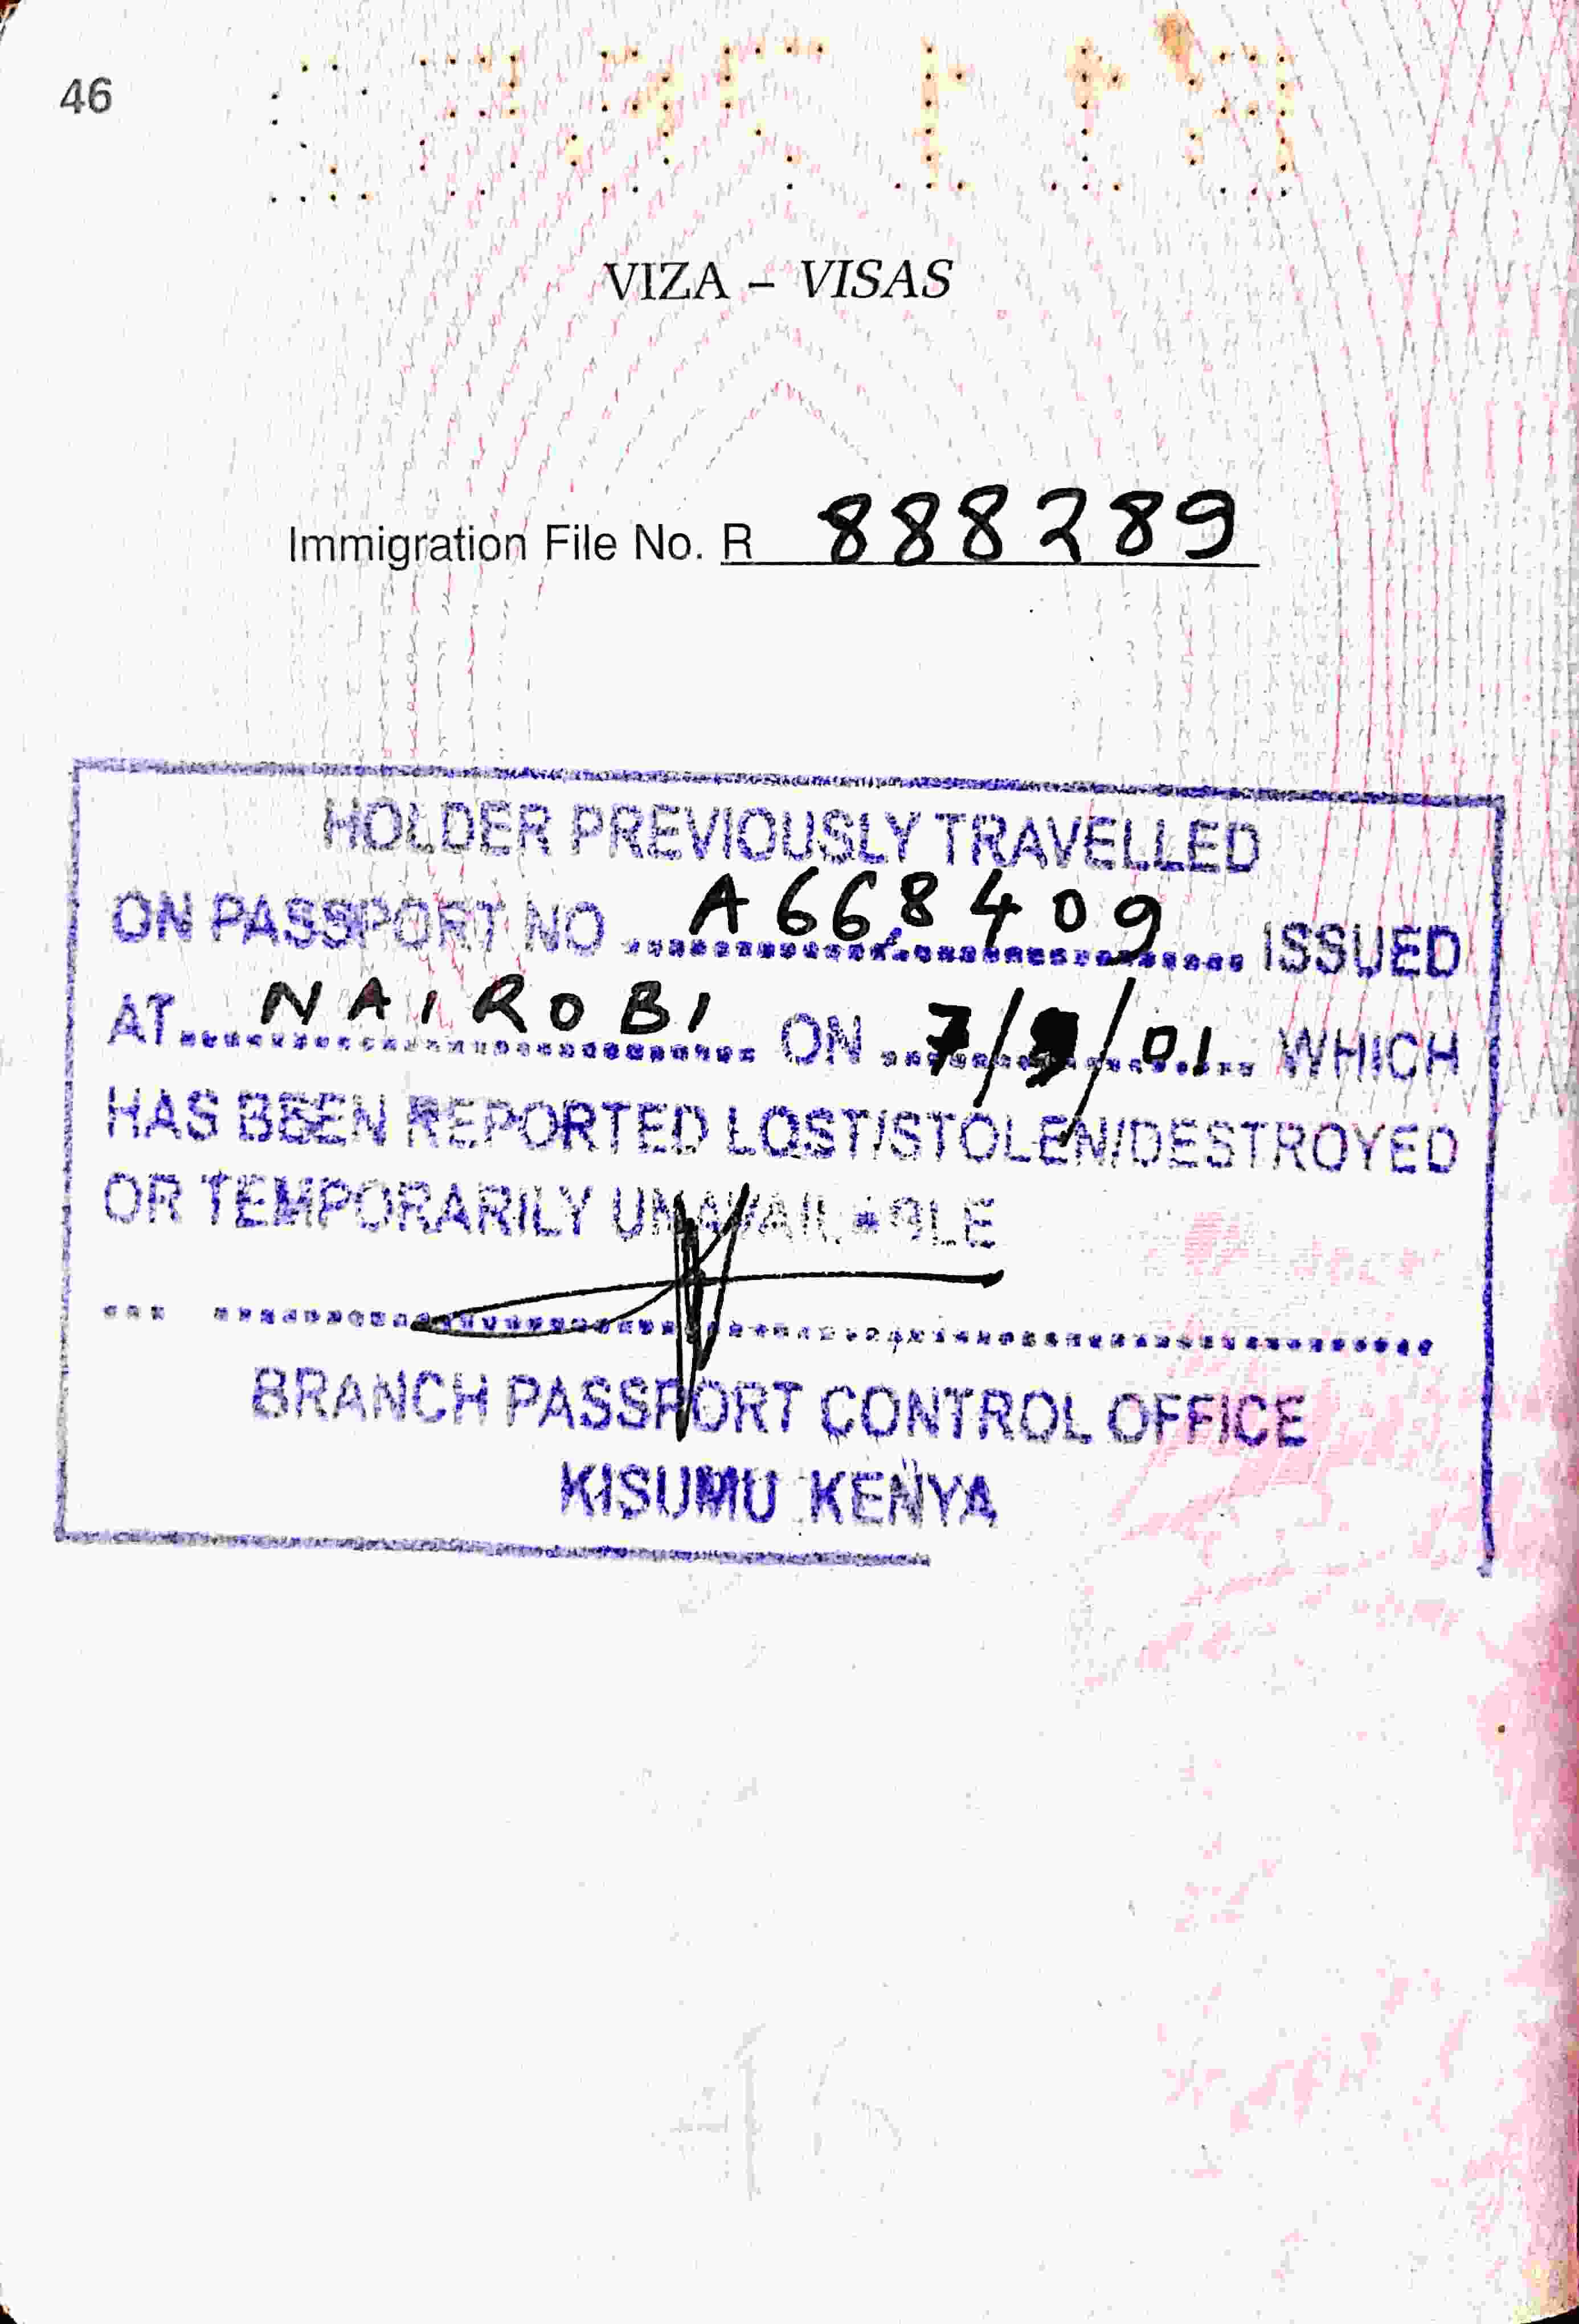 46
VIZA – VISAS
Immigration File No. R 888289
HOLDER PREVIOUSLY TRAVELLED
ON PASSPORT NO A668409 ISSUED
AT NAIROBI ON 7/ /01 WHICH
HAS BEEN REPORTED LOST/STOLEN/DESTROYED
OR TEMPORARILY UNAVAILABLE
BRANCH PASSPORT CONTROL OFFICE
KISUMU KENYA